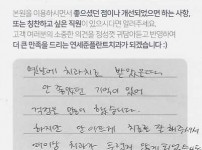 본원을 이용하시면서 좋으셨던 점이나 개선되었으면 하는 사항,
또는 칭찬하고 싶은 직원이 있으시다면 알려주세요.
고객 여러분의 소중한 의견을 정성껏 귀담아듣고 반영하여
더 큰 만족을 드리는 연세종플란트치과가 되겠습니다 :)
옛날에 치과치료 받았었는데
안 좋았던 기억이 있어
걱정을 많이 했습니다.
하지만 안 아프게 치료를 잘 해주셔서